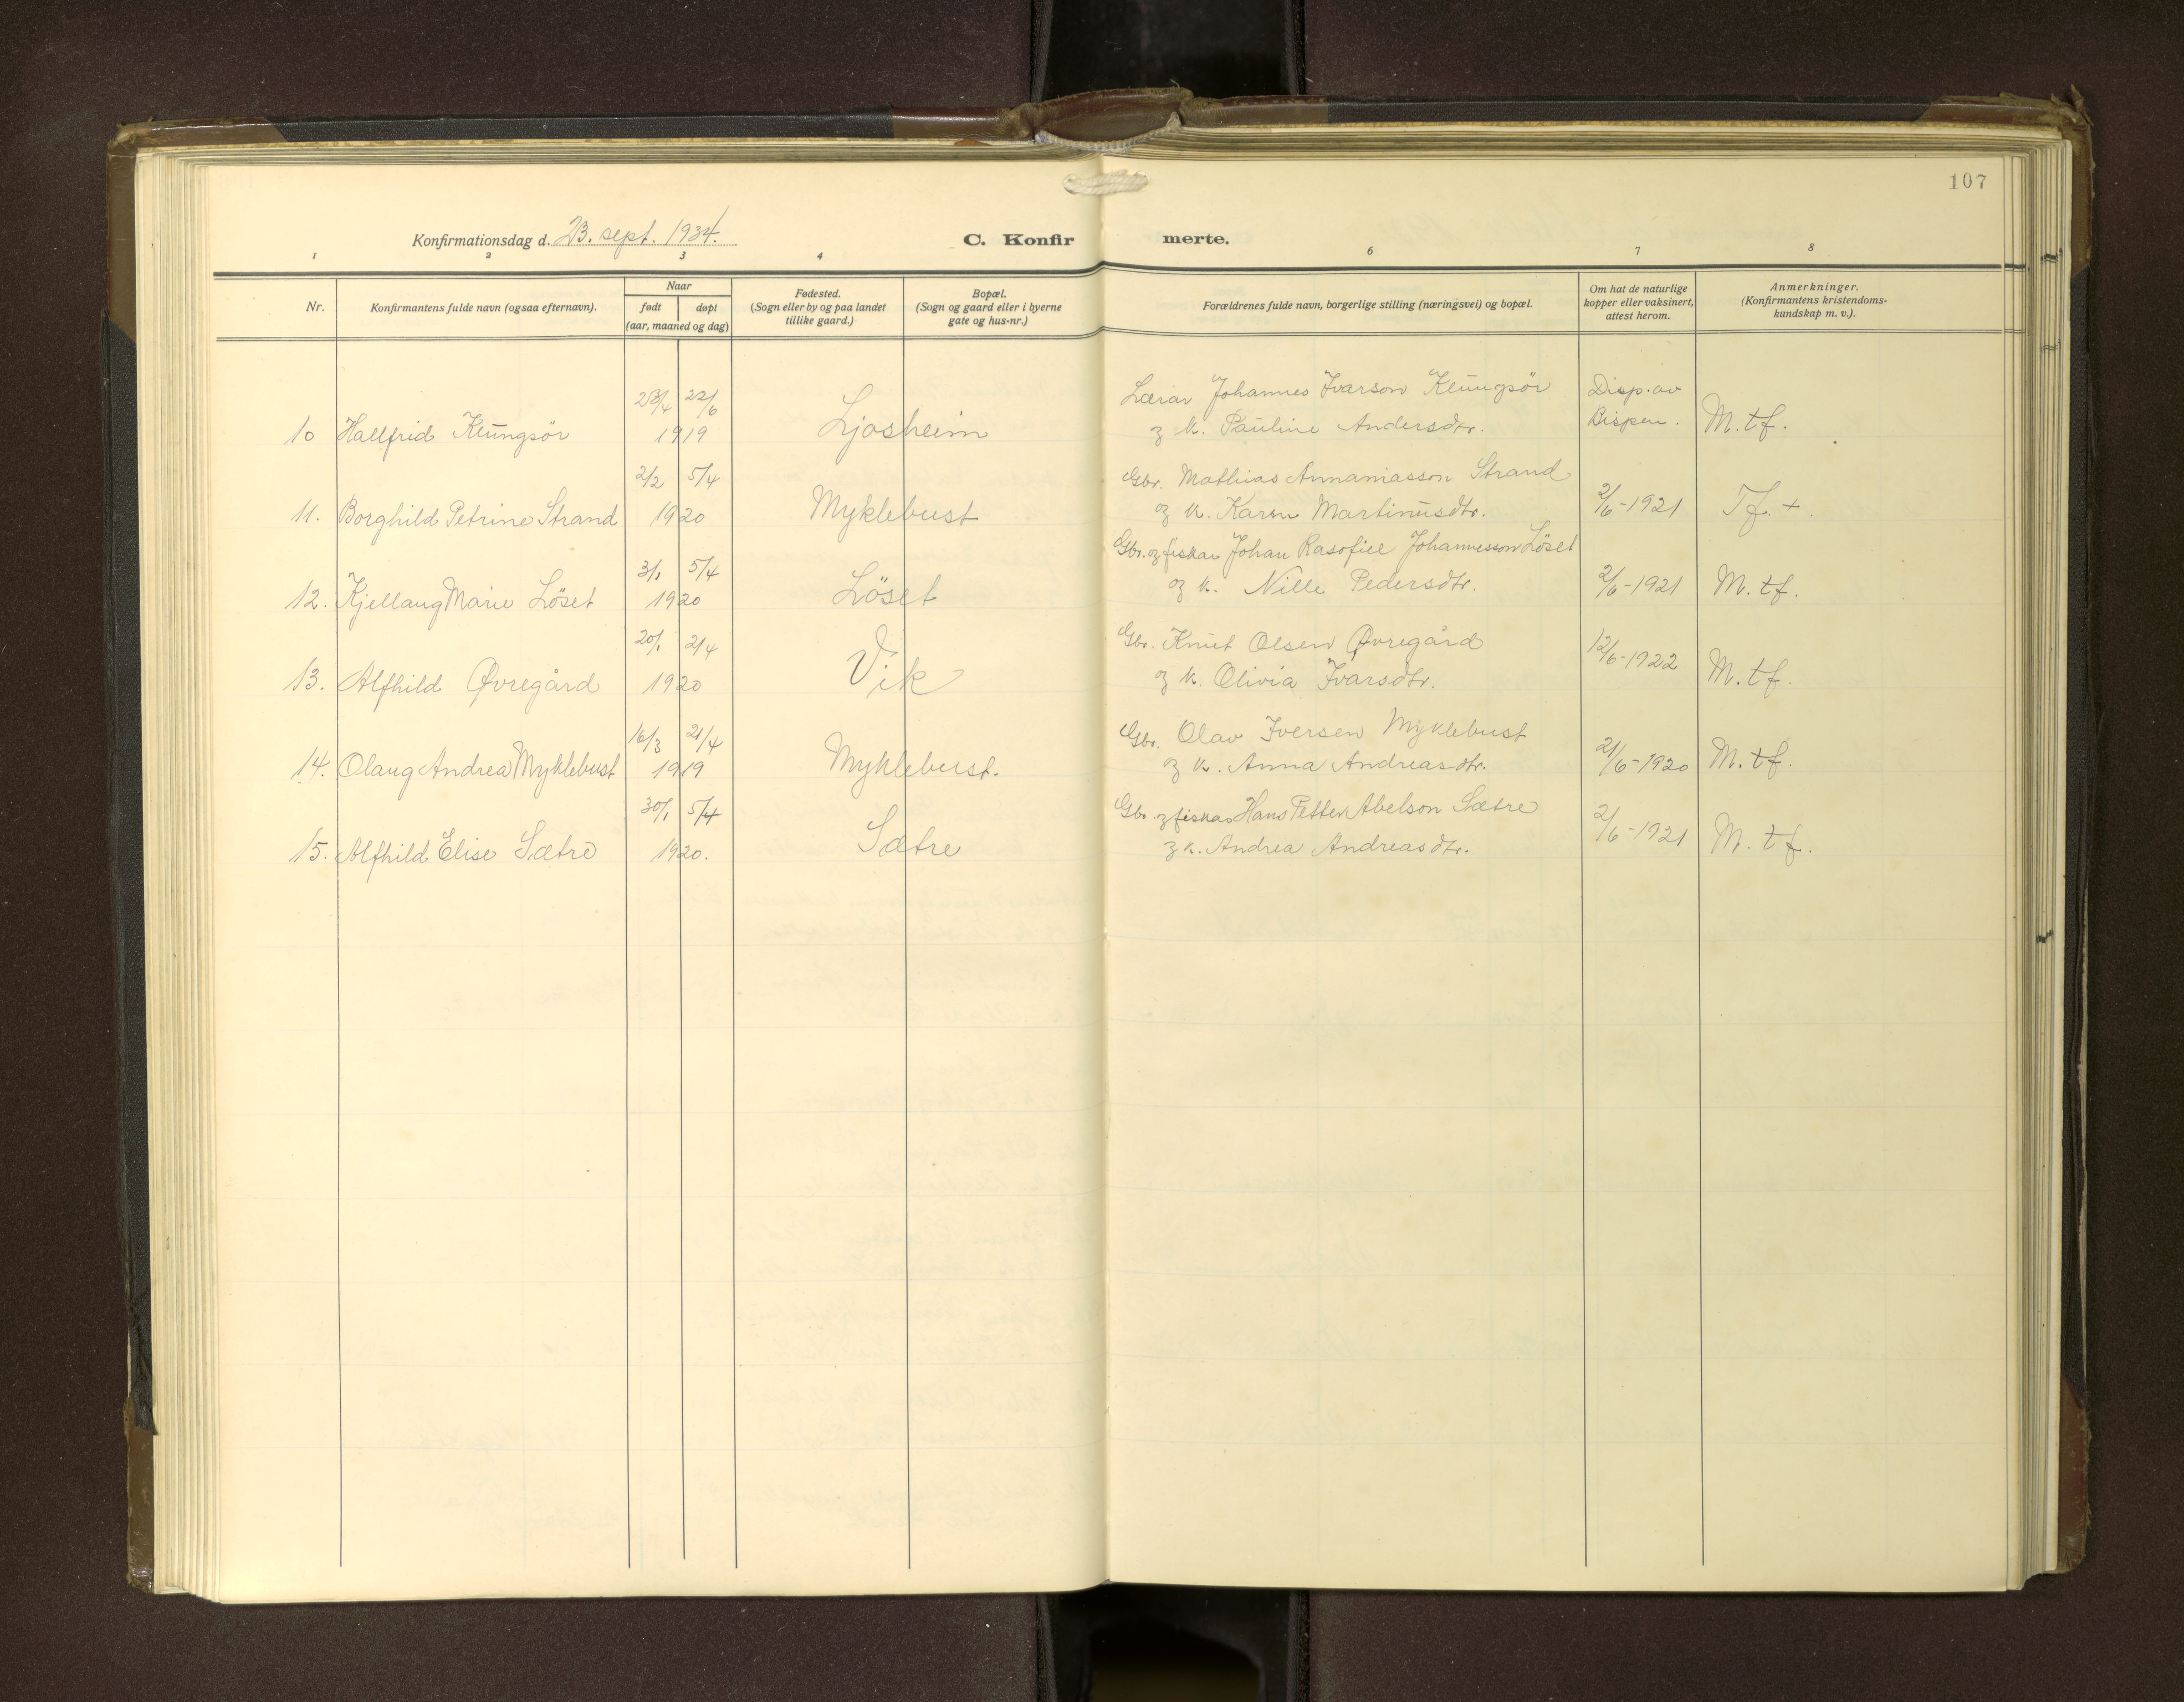 107
Konfirmationsdag d. 23. sept. 1934.
C. Konfirmerte.
1 2 3 4 6 7 8
Nr. Konfirmantens fulde navn (ogsaa efternavn). Naar født døpt (aar, maaned og dag) Fødested. (Sogn eller by og paa landet tillike gaard.) Bopæl. (Sogn og gaard eller i byerne gate og hus-nr.) Forældrenes fulde navn, borgerlige stilling (næringsvei) og bopæl. Om hat de naturlige kopper eller vaksinert, attest herom. Anmerkninger. (Konfirmantens kristendoms-kundskap m. v.).
23/4 22/6 Lærar Johannes Ivarson Klungsör Disp. av
10 Hallfrid Klungsör 1919 Ljosheim og k. Pauline Andersdtr. Bispen. M. tf.
2/2 5/4 Gbr. Mathias Annaniasson Strand
11. Borghild Petrine Strand 1920 Myklebust og k. Karen Martinusdtr. 2/6-1921 Tf. +.
3/1 5/4 Gbr. og fiskar Johan Rasofiel Johannesson Löset
12. Kjellaug Marie Löset 1920 Löset og k. Nille Pedersdtr. 2/6-1921 M. tf.
20/1 2/4 Gbr. Knut Olsen Øvregård
13. Alfhild Øvregård 1920 Vik og k. Olivia Ivarsdtr. 12/6-1922 M. tf.
16/3 21/4 Gbr. Olav Iversen Myklebust
14. Olaug Andrea Myklebust 1919 Myklebust. og k. Anna Andreasdtr. 21/6-1920 M. tf.
30/1 5/4 Gbr. og fiskar Hans Petter Abelson Sætre
15. Alfhild Elise Sætre 1920. Sætre og k. Andrea Andreasdtr. 2/6-1921 M. tf.